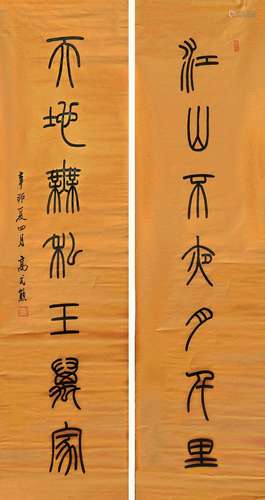 江山不夜月千里
天地無私玉萬家
辛卯夏四月 高式熊